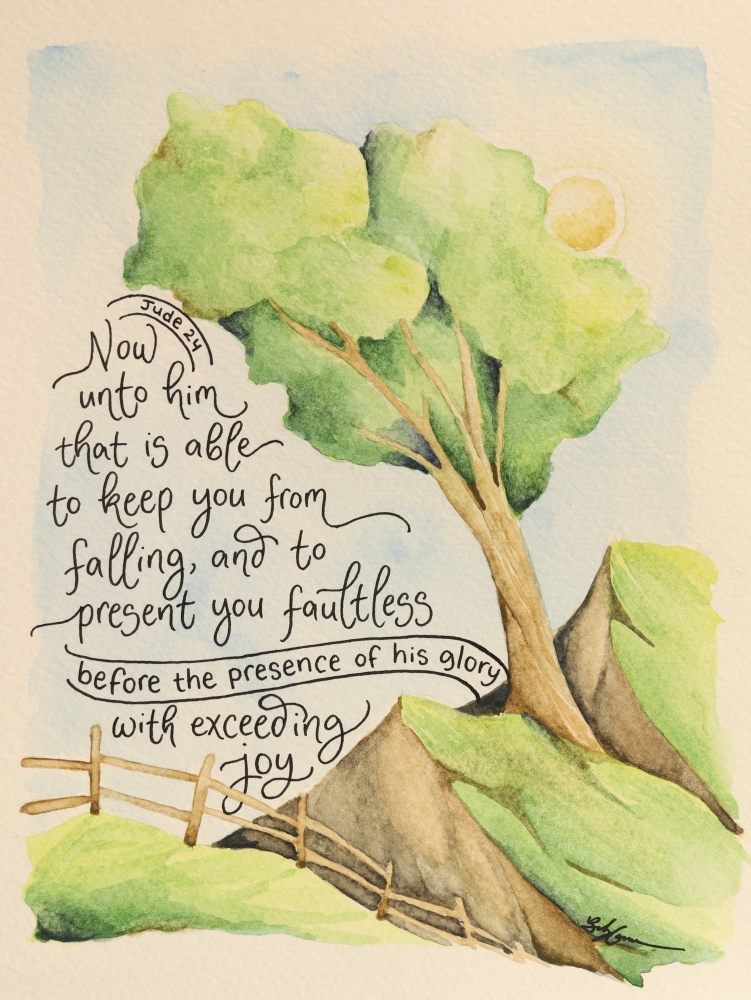 Jude 24
Now
unto him
that is able
to keep you from
falling, and to
present you faultless
before the presence of his glory
with exceeding
joy